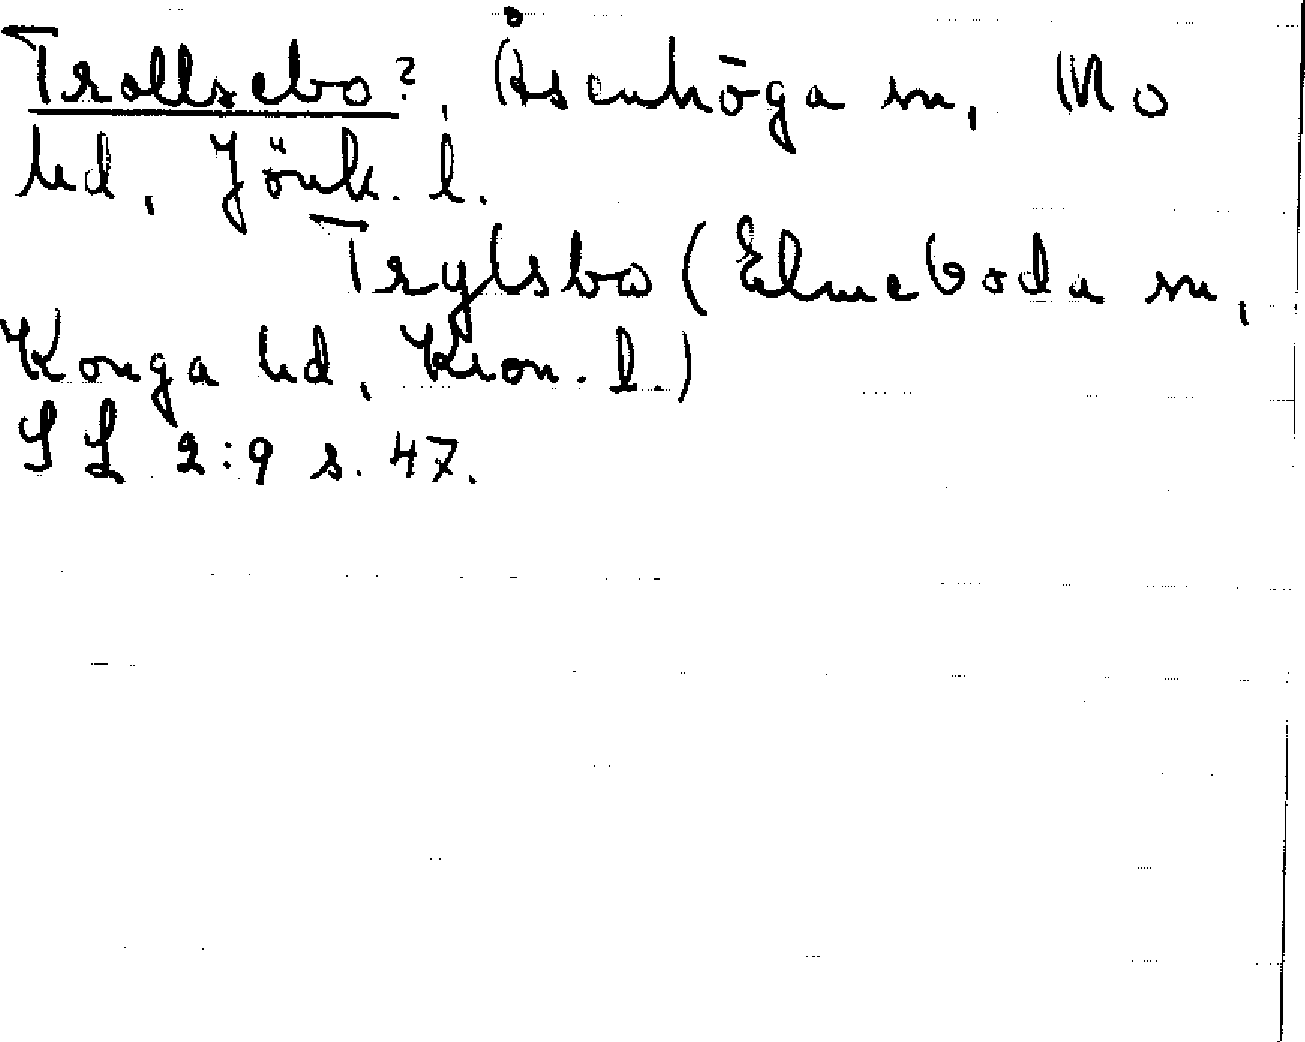 Trollsebo?, Åsenhöga sn, Mo
hd, Jönk. l.
Trylsbo (Elmeboda sn,
Konga hd, Kron. l.)
SL 2:9 s. 47.